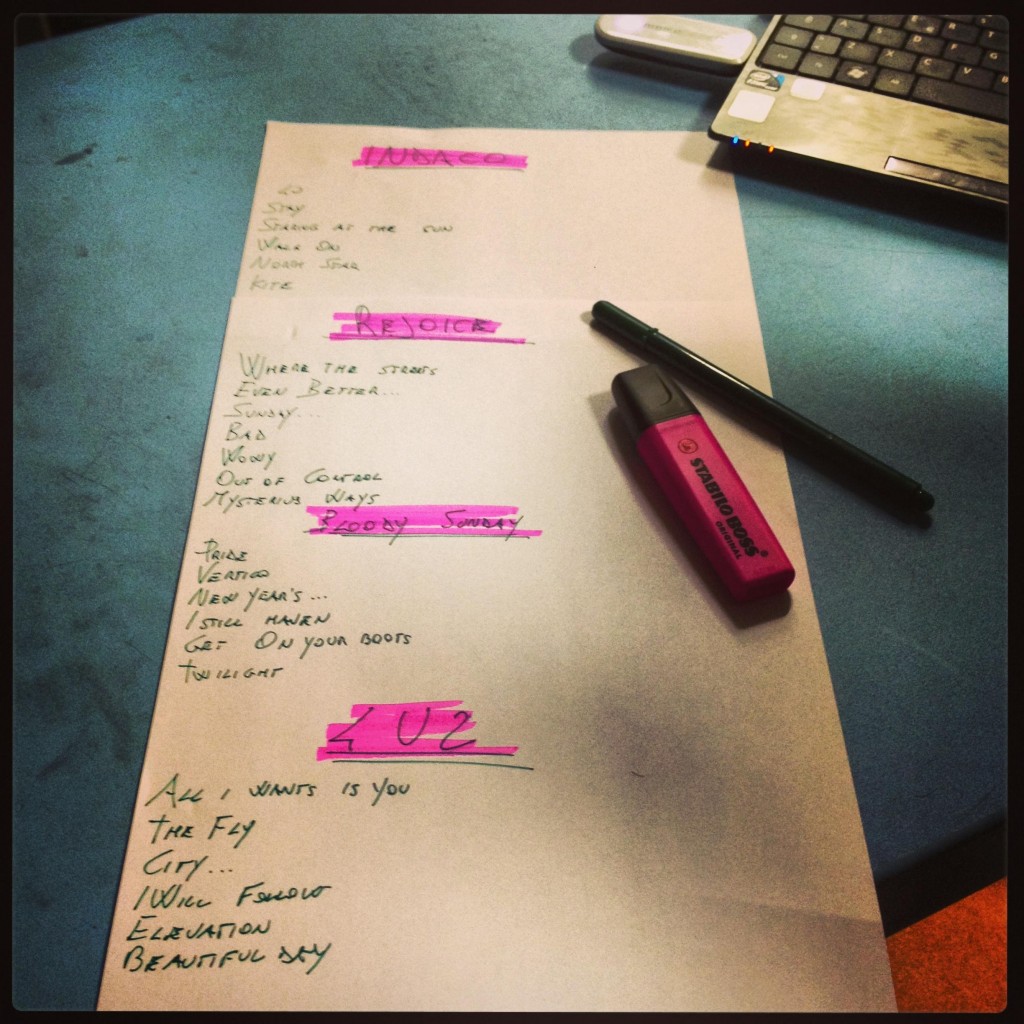 INDACO
40
STAY
STARING AT THE SUN
WALK ON
NORTH STAR
KITE
REJOICE
WHERE THE STREETS
EVEN BETTER...
SUNDAY...
BAD
WOWY
OUT OF CONTROL
MYSTERIUS WAYS
BLOODY SUNDAY
PRIDE
VERTIGO
NEW YEAR'S...
I STILL HAVEN
GET ON YOUR BOOTS
TWILIGHT
4 U2
ALL I WANTS IS YOU
THE FLY
CITY...
I WILL FOLLOW
ELEVATION
BEAUTIFUL DAY
STABILO BOSS
ORIGINAL